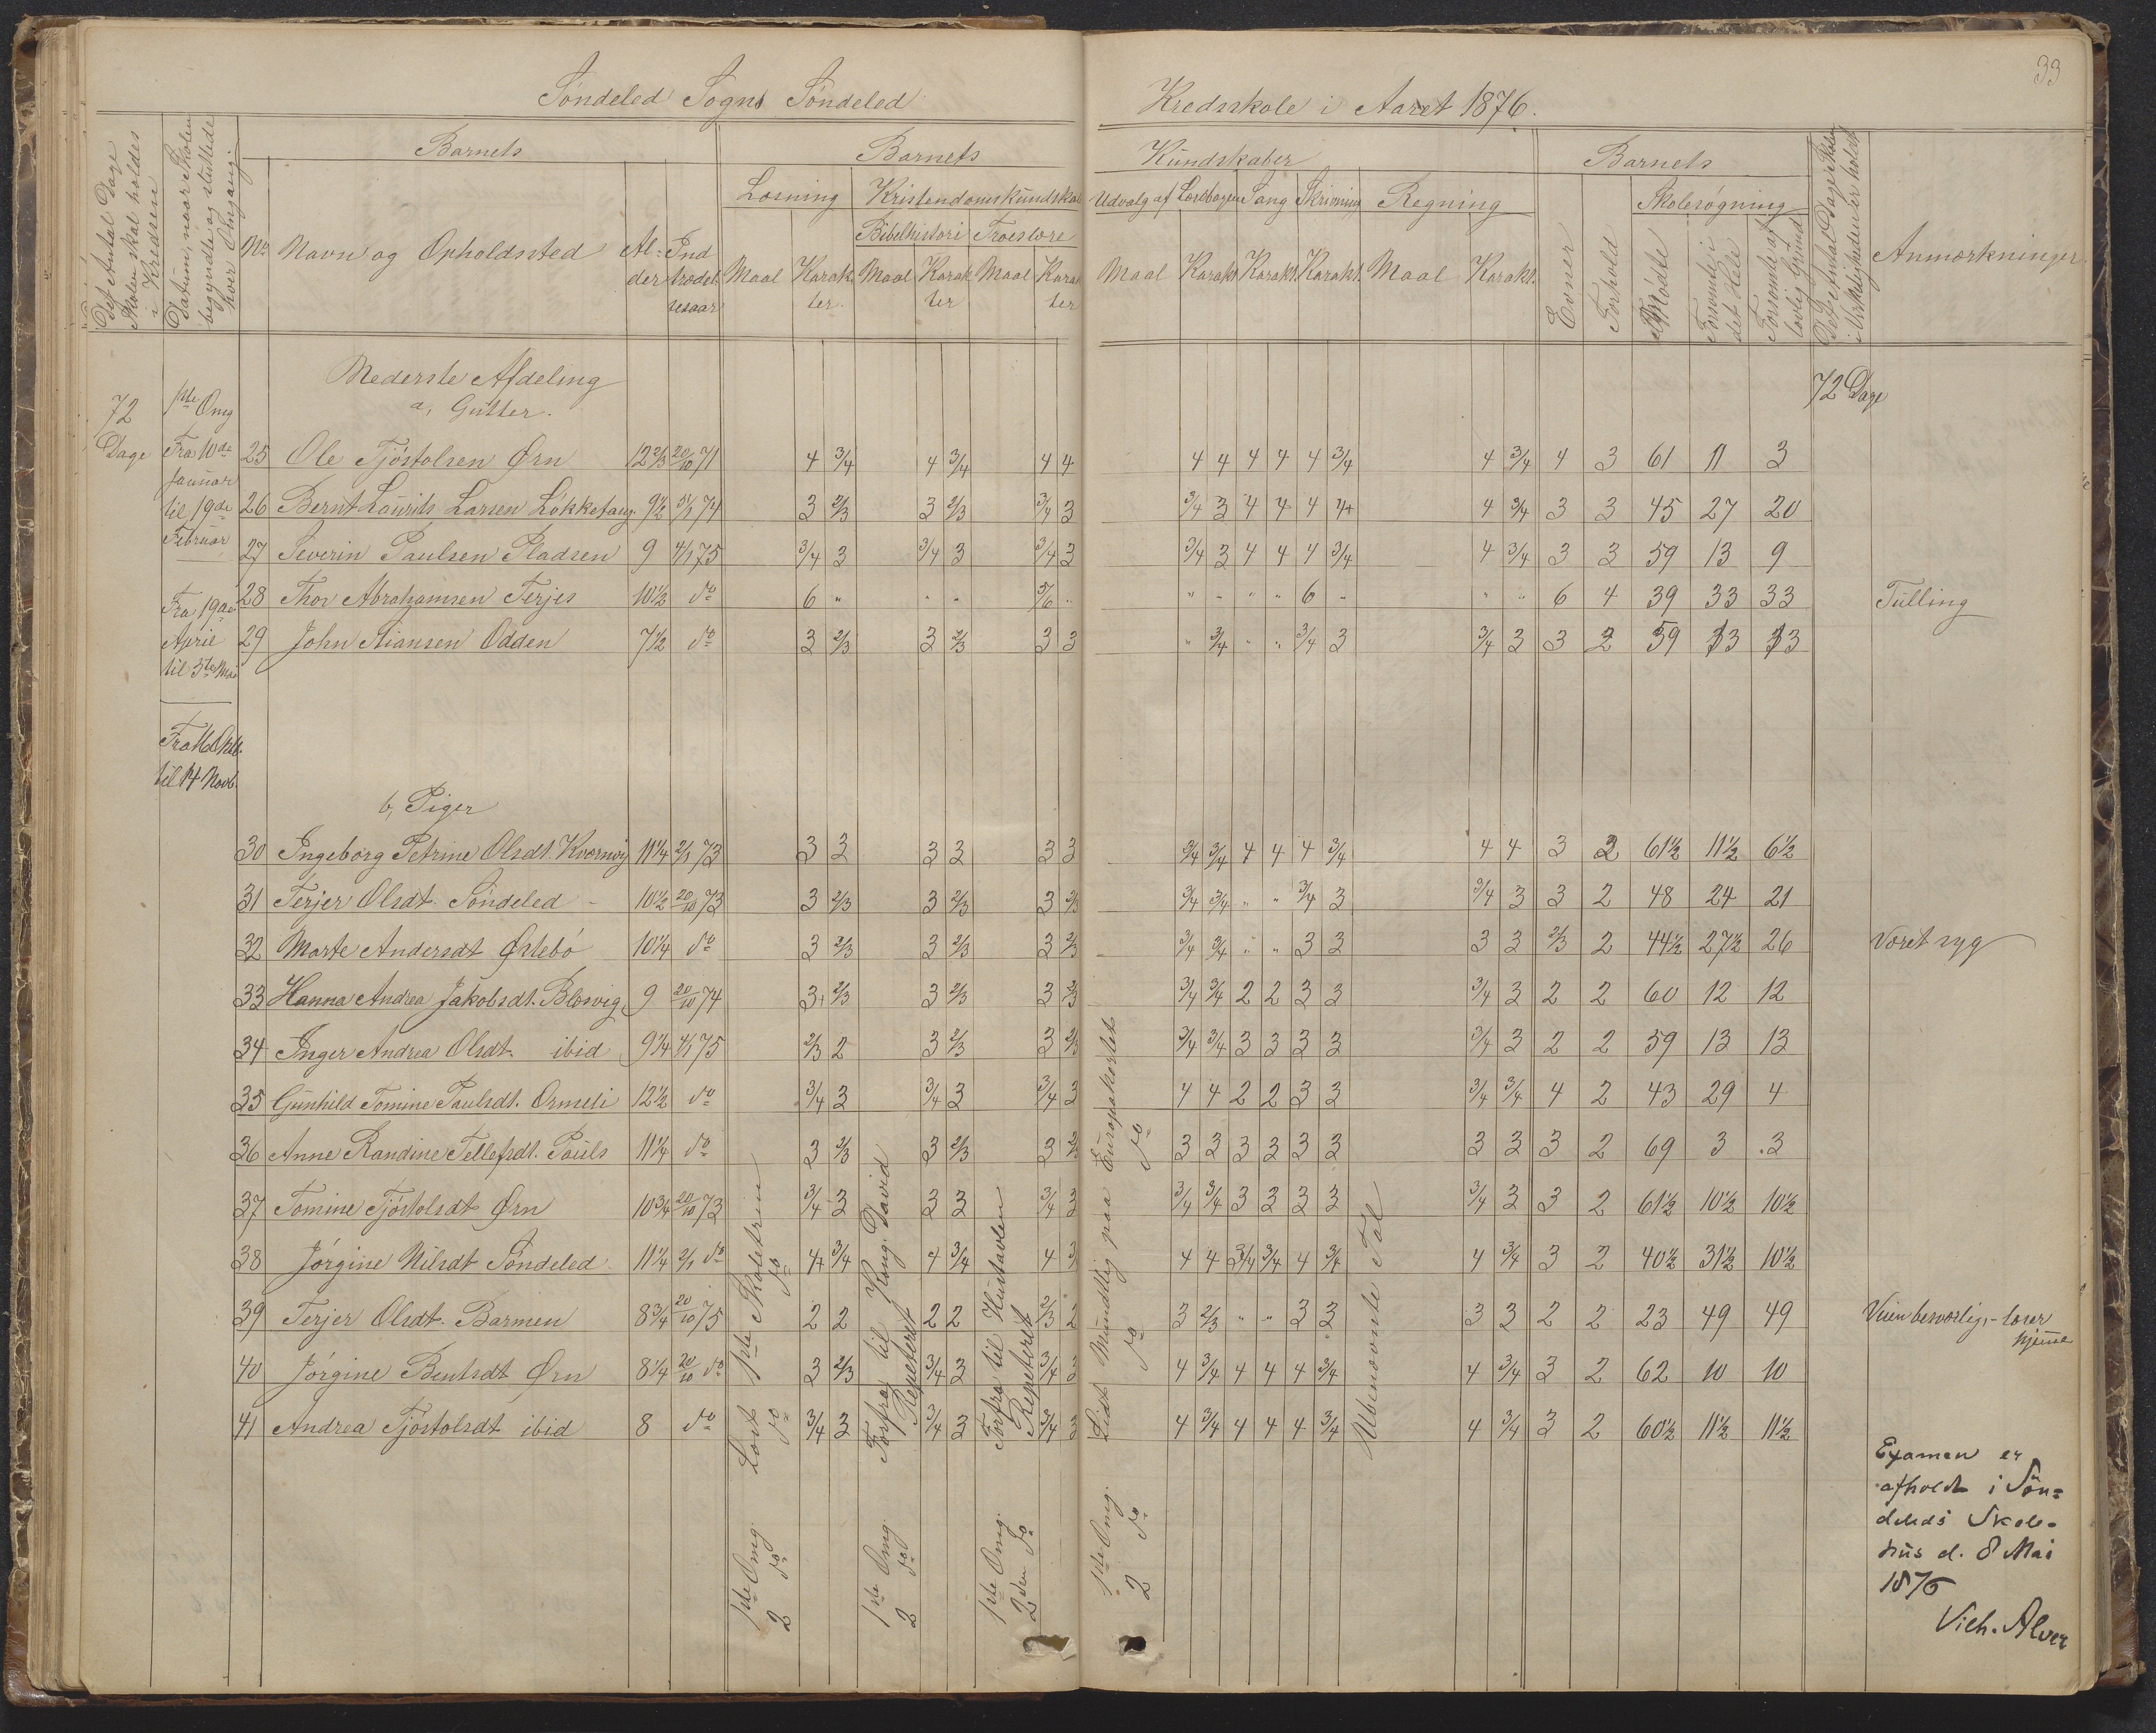 33
Søndeled Sogns Søndeled Kredsskole i Aaret 1876.
Det Antal Dage Skolen skal holdes i Kredsen
Datum, naar Skolen begyndte og sluttede hver Omgang.
Barnets
No Navn og Opholdssted Alder Indtrædelsesaar
Barnets Kundskaber
Læsning Kristendomskundskab
Bibelhistorie Troeslære
Maal Karakter Maal Karakter Maal Karakter
Udvalg af Læsebogen Sang Skrivning Regning
Maal Karakt. Karakt. Karakt. Maal Karakt.
Barnets
Evner Forhold Skolesøgning
Mødte Forsømte i det Hele Forsømte af lovlig Grund
Det Antal Dage Skolen i Virkeligheden er holdt
Anmærkninger
Nederste Afdeling
a, Gutter.
72 Dage
1ste Omg
Fra 10de Januar til 19de Februar
Fra 19de April til 3te Mai
til 14 Novb.
72 Dage
25 Ole Tjøstolsen Ørn 12 2/3 20/10 71 4 3/4 4 3/4 4 4 4 4 4 4 4 3/4 4 3/4 4 3 61 11 3
26 Bernt Laurits Larsen Løkketang. 9 1/2 3/1 74 3 2/3 3 2/3 3/4 3 3/4 3 4 4 4 4+ 4 3/4 3 3 45 27 20
27 Severin Paulsen Pladsen 9 4/1 75 3/4 3 3/4 3 3/4 3 3/4 3 4 4 4 3/4 4 3/4 3 3 59 13 9
28 Thor Abrahamsen Terjes 10 1/2 do 6 " " " 5/6 " " " " " 6 " " " 6 4 39 33 33 Tulling
29 John Stiansen Odden 7 1/2 do 3 2/3 3 2/3 3 3 " 3/4 " " 3/4 3 3/4 3 3 2 59 13 13
b, Piger
30 Ingeborg Petrine Olsdt. Kvernvig 11 1/4 2/1 73 3 3 3 3 3 3 3/4 3/4 4 4 4 3/4 4 4 3 2 61 1/2 11 1/2 6 1/2
31 Terjer Olsdt. Søndeled 10 1/2 20/10 73 3 2/3 3 2/3 3 2/3 3/4 3/4 " " 3/4 3 3/4 3 3 2 48 24 21
32 Marte Andersdt Østebø 10 1/4 do 3 2/3 3 2/3 3 2/3 3/4 3/4 " " 3 3 3 3 2/3 2 44 1/2 27 1/2 26 Været syg
33 Hanna Andrea Jakobsdt. Blesvig 9 20/10 74 3+ 2/3 3 2/3 3 2/3 3/4 3/4 2 2 3 3 3/4 3 2 2 60 12 12
34 Inger Andrea Olsdt. ibid 9 3/4 4/1 75 2/3 2 3 2/3 3 2/3 3/4 3/4 3 3 3 3 3/4 3 2 2 59 13 13
35 Gunhild Tomine Paulsdt. Ormsli 12 1/2 do 3/4 3 3/4 3 3/4 3 4 4 2 2 3 3 3/4 3/4 4 2 43 29 4
36 Anne Randine Tellefsdt. Pauls 11 1/4 do 3 2/3 3 2/3 3 2/3 3 3 3 3 3 3 3 3 3 2 69 3 3
37 Tomine Tjøstolsdt Ørn 10 3/4 20/10 73 3/4 3 3 3 3/4 3 3/4 3/4 3 3 3 3 3/4 3 3 2 61 1/2 10 1/2 10 1/2
38 Jørgine Nilsdt Søndeled 11 1/4 2/1 do 4+ 3/4 4 3/4 4 3/4 4 4 3/4 3/4 4 3/4 4 3/4 3 2 40 1/2 31 1/2 10 1/2
39 Terjer Olsdt. Barmen 8 3/4 20/10 75 2 2 2 2 2/3 2 3 2/3 " " 3 3 3 3 2 2 23 49 49 Veien besværlig, - læser hjemme
40 Jørgine Bentsdt Ørn 8 1/4 20/10 do 3 2/3 3/4 3 3/4 3 4 3/4 4 4 4 3/4 4 3/4 3 2 62 10 10
41 Andrea Tjøstolsdt ibid 8 do 3/4 3 3/4 3 3/4 3 4 3/4 4 4 4 3/4 4 3/4 3 2 60 1/2 11 1/2 11 1/2
1ste Omg. Læst 1ste Skoletrin
2 do do do
1ste Omg. Forfra til Kong David
2 do Repeteret
1ste Omg. Forfra til Hustavlen
2den do Repeteret
1ste Omg. Lidt Mundtlig paa Europakortet
2 do do do
Ubenævnte Tal
Examen er
afholdt i Søn=
deleds Skole-
hus d. 8 Mai
1876
Vilh. Alver